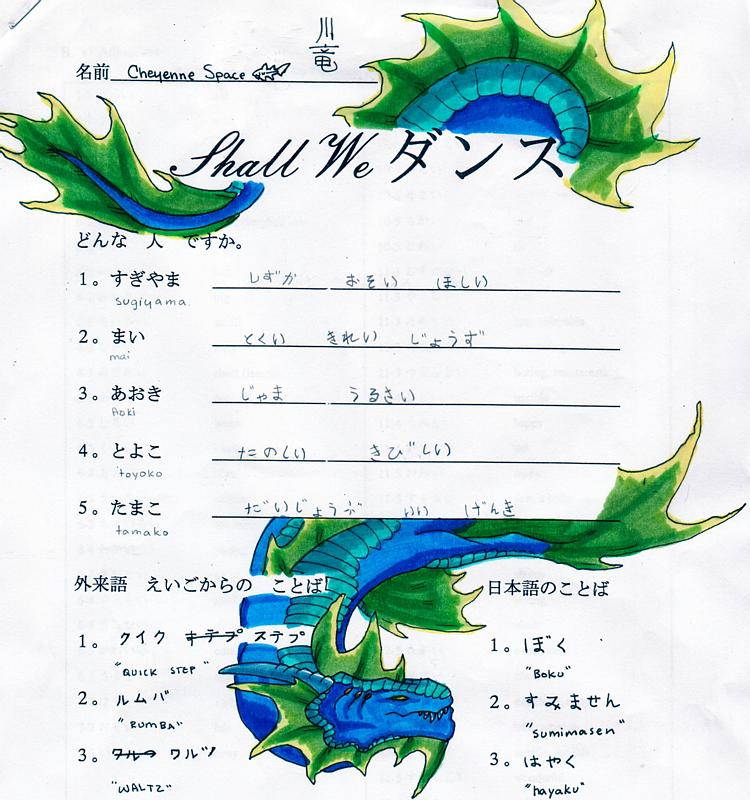 川
竜
名前 Cheyenne Space
Shall We ダンス
どんな 人 ですか。
1。すぎやま しずか おそい ほしい
sugiyama.
2。まい とくい きれい じょうず
mai
3。あおき じゃま うるさい
Aoki
4。とよこ たのしい きびしい
toyoko
5。たまこ だいじょうぶ いい げんき
tamako
外来語 えいごからの ことば 日本語のことば
1。クイク キテプ ステプ 1。ぼく
"QUICK STEP" "Boku"
2。ルムバ 2。すみません
"RUMBA" "sumimasen"
3。ワルツ 3。はやく
"WALTZ" "hayaku"